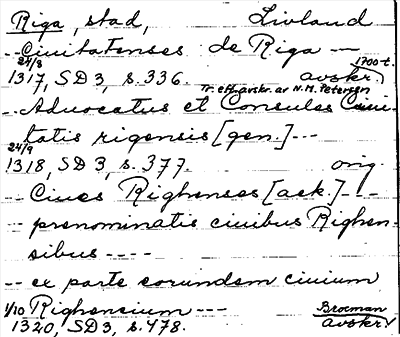 Riga, stad, Livland
-- Civitatenses de Riga --
24/3 1700-t.
1317, SD 3, s. 336. avskr.)
Tr. eft. avskr. av N. M. Petersen
-- Advocatus et Consules Civi-
tatis rigensis [gen.] ---
24/9
1318, SD 3, s. 377. orig.
-- Cives Righenses [ack.] ---
-- prenominatis civibus Righen-
sibus ----
-- ex parte eorundem civium
1/10 Righensium --- Brocman
1320, SD 3, s. 478. avskr.)